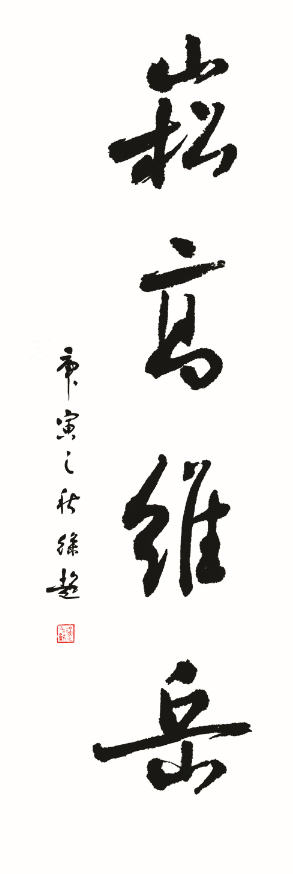 崧高維岳
庚寅之秋徐超